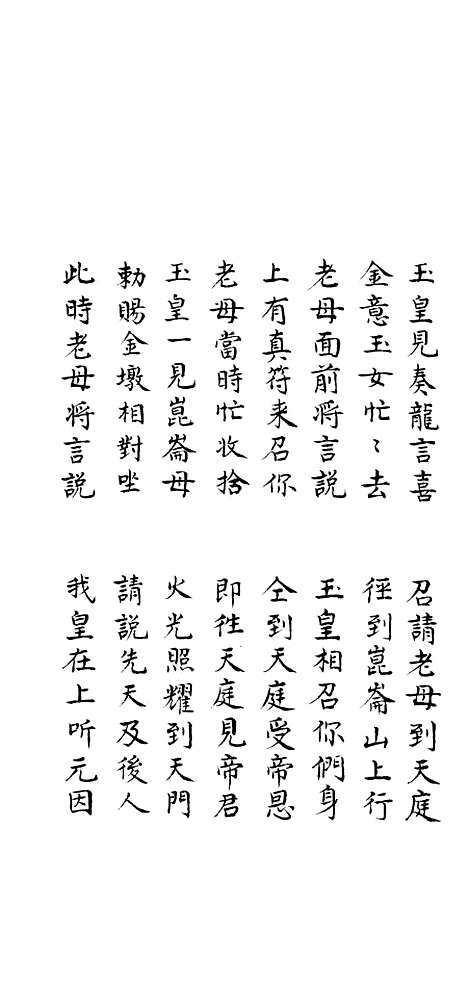 玉皇見奏龍言喜 召請老母到天庭
金意玉女忙〻去 徑到崑崙山上行
老母面前將言說 玉皇相召你們身
上有真符来召你 仝到天庭受帝恩
老母當時忙收捨 即徃天庭見帝君
玉皇一見崑崙母 火光照耀到天門
勅賜金墩相對坐 請說先天及後人
此時老母将言説 我皇在上听元因